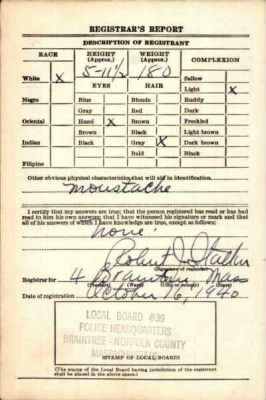 REGISTRAR'S REPORT
DESCRIPTION OF REGISTRANT
RACE HEIGHT (Approx.) WEIGHT (Approx.) COMPLEXION
5-11½ 180
White X Sallow
Light X
EYES HAIR
Negro Blue Blonde Ruddy
Gray Red Dark
Oriental Hazel X Brown Freckled
Brown Black Light brown
Indian Black Gray X Dark brown
Bald Black
Filipino
Other obvious physical characteristics that will aid in identification
moustache
I certify that my answers are true; that the person registered has read or has had
read to him his own answers; that I have witnessed his signature or mark and that
all of his answers of which I have knowledge are true, except as follows:
none
Robert J.
(Signature of registrar)
Registrar for 4 Braintree Mass
(Precinct) (Ward) (City or county) (State)
Date of registration October 16, 1940
LOCAL BOARD #39
POLICE HEADQUARTERS
BRAINTREE - NORFOLK COUNTY
MASSACHUSETTS
(STAMP OF LOCAL BOARD)
(The stamp of the Local Board having jurisdiction of the registrant
shall be placed in the above space.)